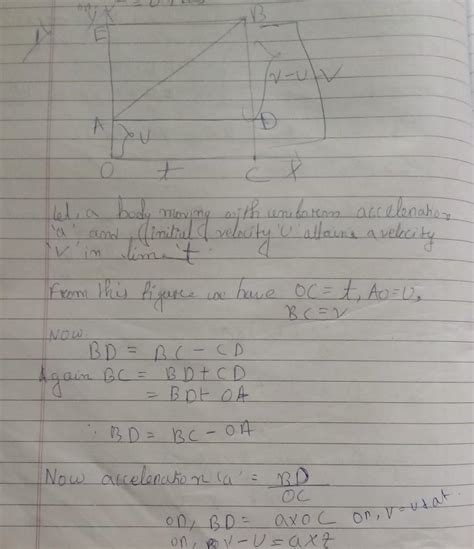 E
B
V-U
V
A
D
U
O
t
C
X
Let, a body moving with uniform acceleration
'a' and initial velocity 'u' attains a velocity
'v' in time 't'.
From this figure we have OC = t, AO = U,
BC = v
Now
BD = BC - CD
Again BC = BD + CD
= BD + OA
∴ BD = BC - OA
Now acceleration 'a' = BD
OC
or, BD = a x OC or, v = u + at
or, V - U = a x t